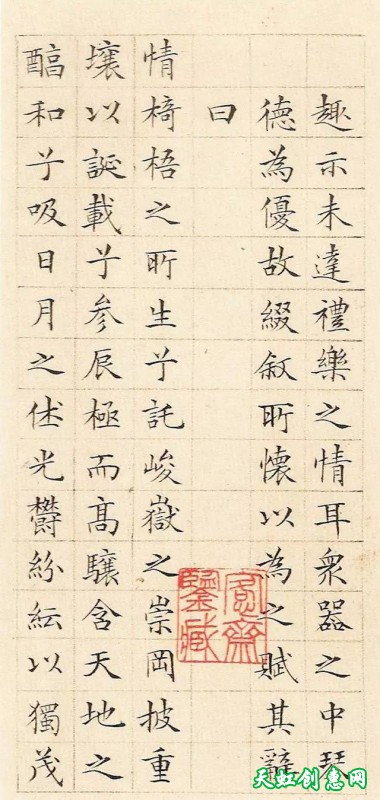 趣示未達禮樂之情耳衆器之中琴
德為優故綴敘所懷以為之賦其辭
曰
情椅梧之所生兮託峻嶽之崇岡披重
壤以誕載兮參辰極而高驤含天地之
醕和兮吸日月之休光鬱紛紜以獨茂
齋
鑒藏
天虹创意网